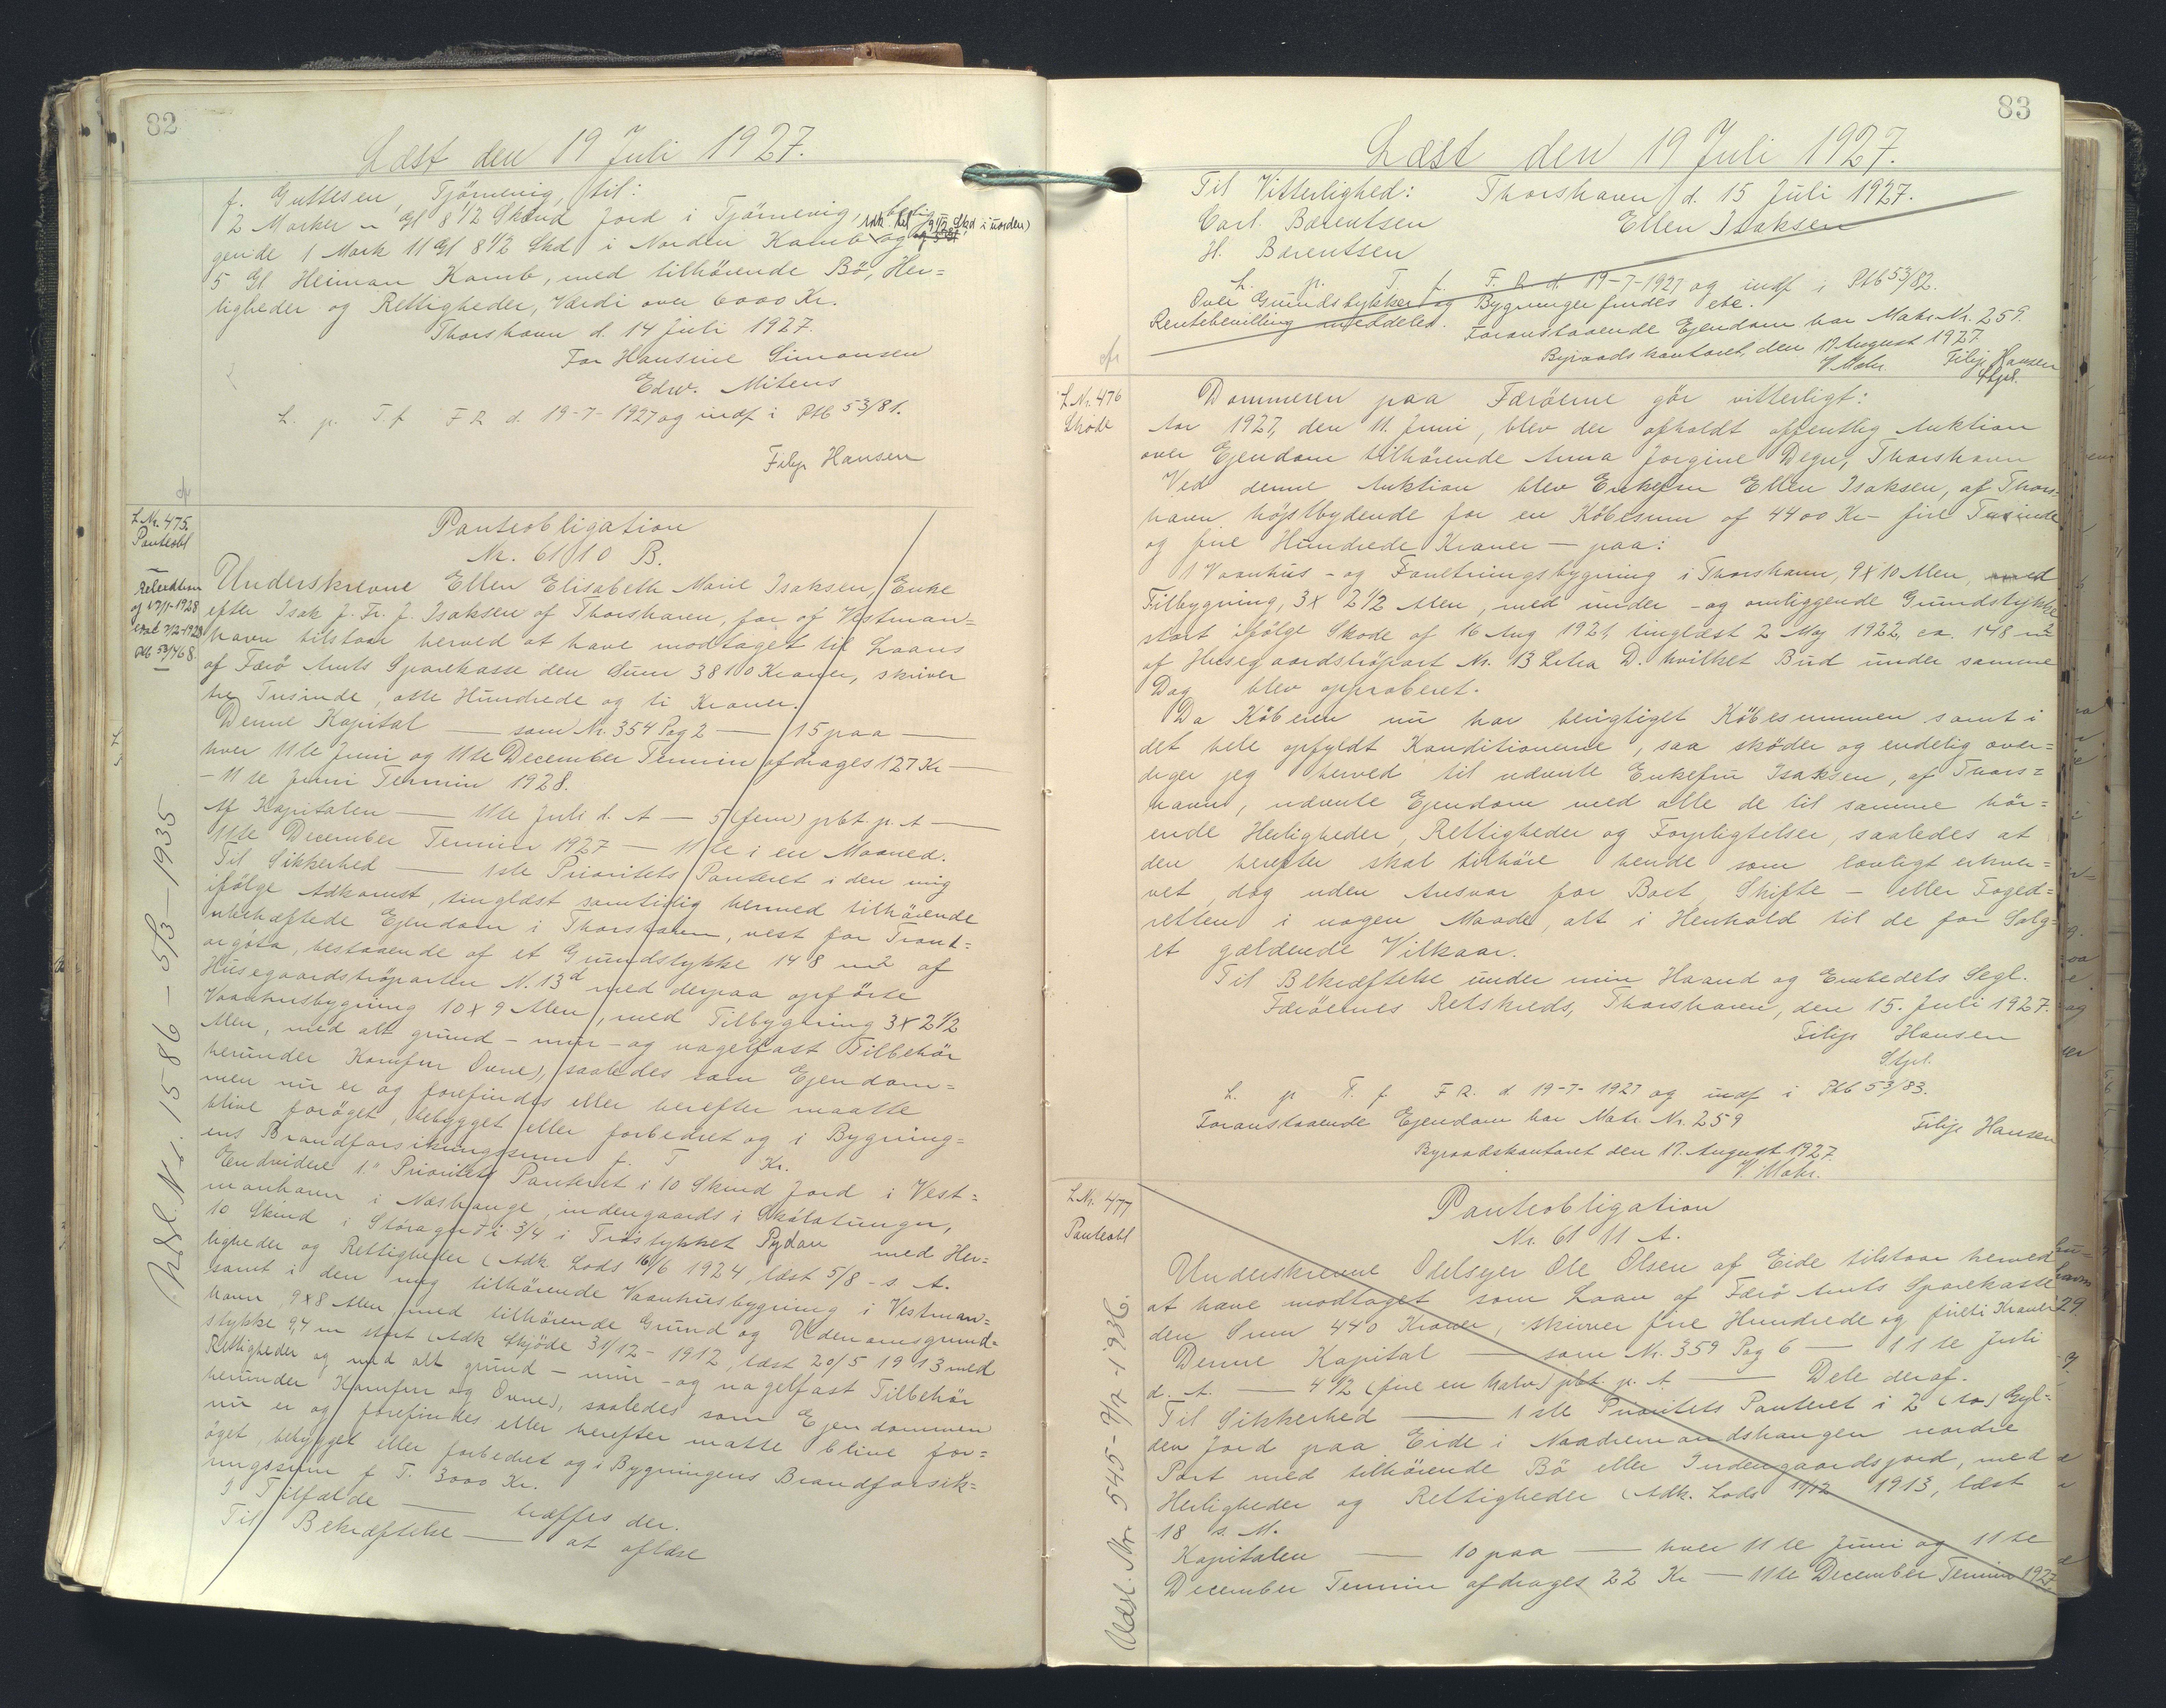 82
Læst den 19 Juli 1927.
f. Guttesen, Tjörnevig, til:
2 Marker - Gl 8 1/2 Skind Jord i Tjörnevig, belig=
gende 1 Mark 11 Gl 8 1/2 Skd i Norden Kamb og
5 Gl Heiman Kamb, med tilhörende Bö, Her=
ligheder og Rettigheder, Værdi over 6000 Kr.
Thorshavn d. 14 Juli 1927.
For Hansine Simonsen
Edw. Mitens
L. p. T. f. F R d. 19-7-1927 og indf i Ptb 53/81.
Filip Hansen
L.Nr. 475.
Panteobl
Panteobligation
Nr. 61 10 B.
Underskrevne Ellen Elisabeth Marie Isaksen, Enke
efter Isak J. Fr. J. Isaksen af Thorshavn, før af Vestman=
havn tilstaar herved at have modtaget til Laans
af Færö Amts Sparekasse den Sum 3810 Kroner, skriver
tre Tusinde, otte Hundrede og ti Kroner.
Denne Kapital — som Nr. 354 Pag 2 — 15 paa —
hver 11te Juni og 11te December Termin afdrages 127 Kr —
- 11te Juni Termin 1928.
Af Kapitalen — 11te Juli d. A — 5 (fem) pbt p. A —
11te December Termin 1927 — 11te i en Maaned.
Til Sikkerhed — 1ste Prioritets Panteret i den mig
ifölge Adkomst, tinglæst samtidig hermed tilhörende
ubehæftede Ejendom i Thorshavn, vest for Tront=
argöta, bestaaende af et Grundstykke 148 m2 af
Husegaardströparten N. 13d med derpaa opförte
Vaanhusbygning 10 x 9 Alen, med Tilbygning 3 x 2 1/2
Alen, med alt grund - mur - og nagelfast Tilbehör
herunder Komfur Ovne), saaledes som Ejendom=
men nu er og forefindes eller herefter maatte
blive foröget, bebygget eller forbedret og i Bygning=
ens Brandforsikringssum f. T Kr.
Endvidere 1ste Prioritets Panteret i 10 Skind Jord i Vest=
manhavn i Næshange, indengaards i Skálatungu,
10 Skind i Störagerti 3/4 i Tröstykket Rydan med Her=
ligheder og Rettigheder (Adk Lods 16/6 1924, læst 5/8 - s. A.
samt i den mig tilhörende Vaanhusbygning i Vestman=
havn, 9 x 8 Alen, med tilhörende Grund og Udenomsgrund=
stykke 9,4 m stort (Adk Skjöde 31/12 - 1912, læst 20/5 1913 med
Rettigheder og med alt grund - mur - og nagelfast Tilbehör
herunder Komfur og Ovne), saaledes som Ejendommen
nu er og forefindes eller herefter maatte blive for=
öget, bebygget eller forbedret og i Bygningens Brandforsik=
ringssum f. T. 3000 Kr.
I Tilfælde — træffes der.
Til Bekræftelse — at aflæse
Udsl. Nr. 1586 - 5/3 - 1935
83
Læst den 19 Juli 1927.
Til Vitterlighed: Thorshavn, d. 15 Juli 1927.
Carl Barentsen Ellen Isaksen
H. Barentsen
L. p. T. f. F. R d. 19-7-1927 og indf i Ptb 53/82.
Over Grundstykker og Bygninger findes ebe.
Rentebevilling meddeles. Foranstaaende Ejendom har Matr. Nr. 259.
Byraadskontoret, den 17 August 1927
V. Mohr. Filip Hansen
Stpl.
L Nr. 476
Sköde
Dommeren paa Færöerne gör vitterligt:
Aar 1927, den 11. Juni, blev der afholdt offentlig Auktion
over Ejendom tilhörende Anna Jorgine Degn, Thorshavn
Ved denne Auktion blev Enkefru Ellen Isaksen, af Thors=
havn höjstbydende for en Köbesum af 4400 Kr - fire Tusinde
og fire Hundrede Kroner - paa:
1 Vaanhus - og Forretningsbygning i Thorshavn, 9 x 10 Alen, med
Tilbygning, 3 x 2 1/2 Alen, med under - og omliggende Grundstykke
stort ifölge Sköde af 16 Aug 1921, tinglæst 2 Maj 1922, ca. 148 m2
af Husegaardströpart Nr. 13 Litra D. hvilket Bud under samme
Dag blev approberet.
Da Köberen nu har berigtiget Köbesummen samt i
det hele opfyldt Konditionerne, saa sköder og endelig over=
drager jeg herved til nævnte Enkefru Isaksen, af Thors=
havn, nævnte Ejendom med alle de til samme hör=
ende Herligheder, Rettigheder og Forpligtelser, saaledes at
den herefter skal tilhöre hende som lovligt erhver=
vet, dog uden Ansvar for Boet, Skifte - eller Foged=
retten i nogen Maade, alt i Henhold til de for Salg=
et gældende Vilkaar.
Til Bekræftelse under min Haand og Embedets Segl.
Færöernes Retskreds, Thorshavn, den 15. Juli 1927.
Filip Hansen
Stpl.
L. p. T. f. F R. d 19-7-1927 og indf i Ptb 53/83.
Foranstaaende Ejendom har Matr. Nr. 259 Filip Hansen
Byraadskontoret den 17. August 1927.
V. Mohr.
L Nr. 477
Panteobl
Panteobligation
Nr. 61 11 A.
Underskrevne Odelsejer Ole Olsen af Eide tilstaar herved
at have modtaget som Laan af Færö Amts Sparekasse
den Sum 440 Kroner, skriver fire Hundrede og fireti Kroner
Denne Kapital — som Nr. 359 Pag 6 — 11te Juli
d. A. — 4 1/2 (fire en halv) pbt. p. A — Dele deraf.
Til Sikkerhed — 1ste Prioritets Panteret i 2 (to) Gyl=
den Jord paa Eide i Naadremandshangen nordre
Part med tilhörende Bö eller Indengaardsjord, med
Herligheder og Rettigheder (Adk. Lods 17/12 1913, læst
18 s. M.
Kapitalen — 10 paa — hver 11te Juni og 11te
December Termin afdrages 22 Kr — 11te December Termin 1927
Udsl. Nr. 545 -